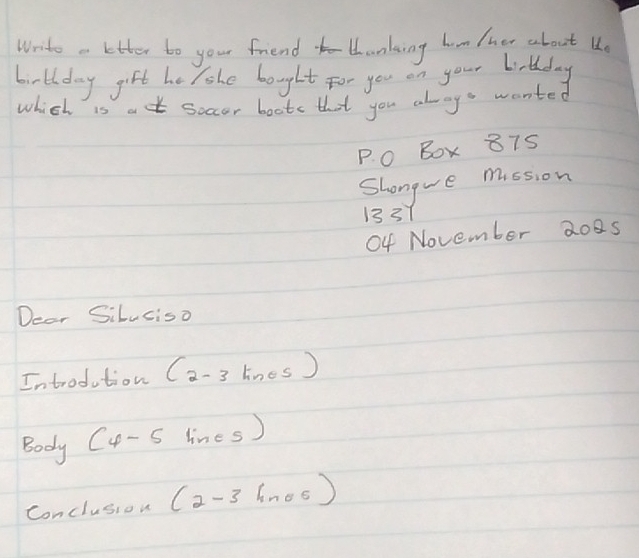 Write a letter to your friend to thanking him/her about the
birthday gift he/she bought for you on your birthday
which is a soccer boots that you always wanted
P.O Box 875
Shongwe Mission
1331
04 November 2025
Dear Sibusiso
Introdution (2-3 lines)
Body (4-5 lines)
Conclusion (2-3 lines)